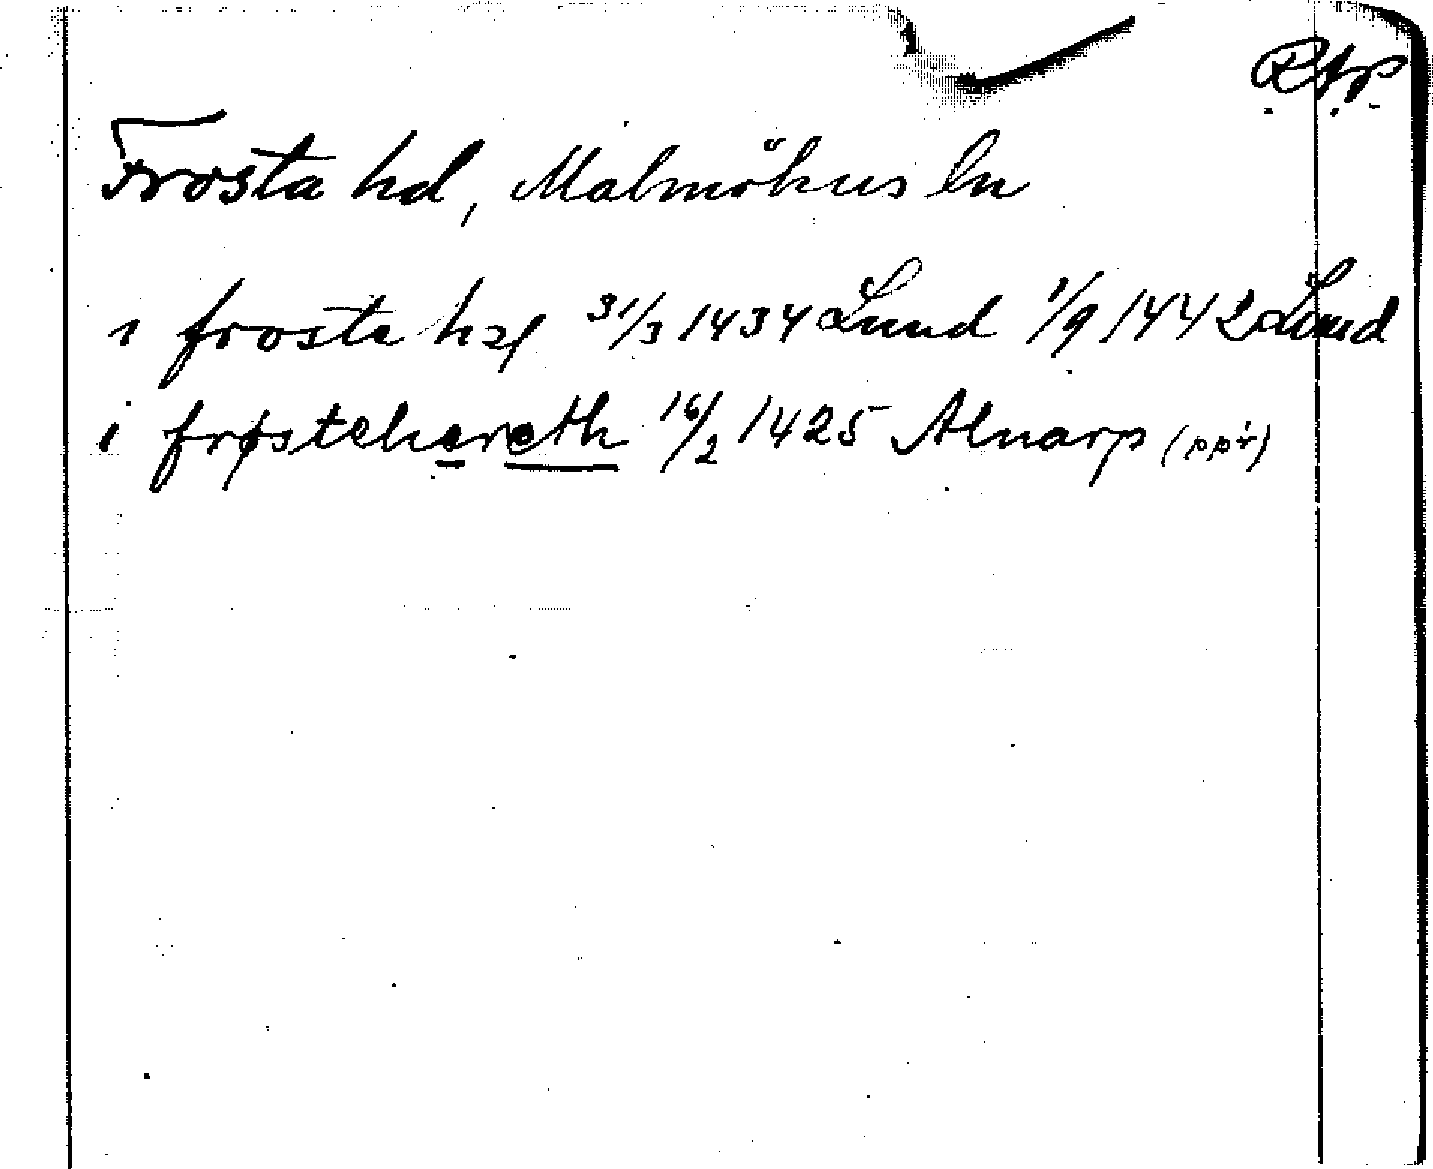 RAp
Frosta hd, Malmöhus ln
i froste hæ 31/3 1434 Lund 1/9 1442 Lund
i frøstehereth 16/2 1425 Alnarp (ppr)